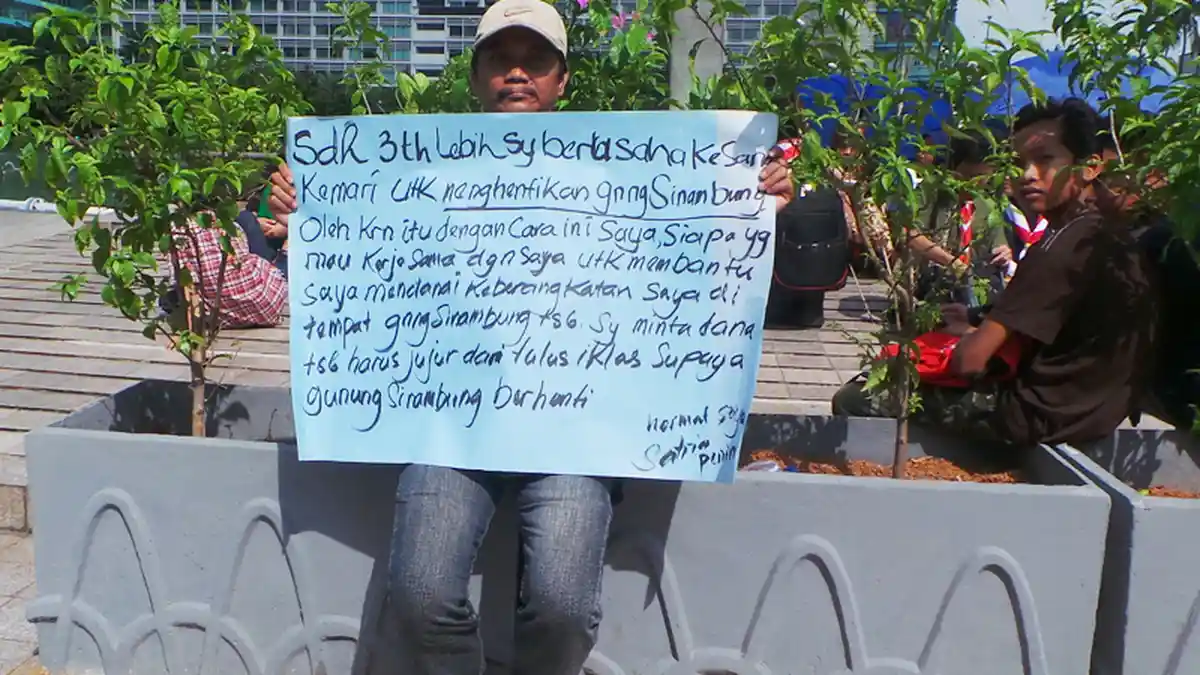 Sdh 3th Lebih Sy berusaha ke San
Kemari utk menghentikan gnng Sinambung
Oleh krn itu dengan Cara ini Saya, Siapa yg
mau kerja Sama dgn Saya utk membantu
Saya mendanai Keberangkatan Saya di
tempat gnng Sinambung tsb. Sy minta dana
tsb harus jujur dari tulus iklas Supaya
gunung Sinambung berhenti
hormat Saya
Satria